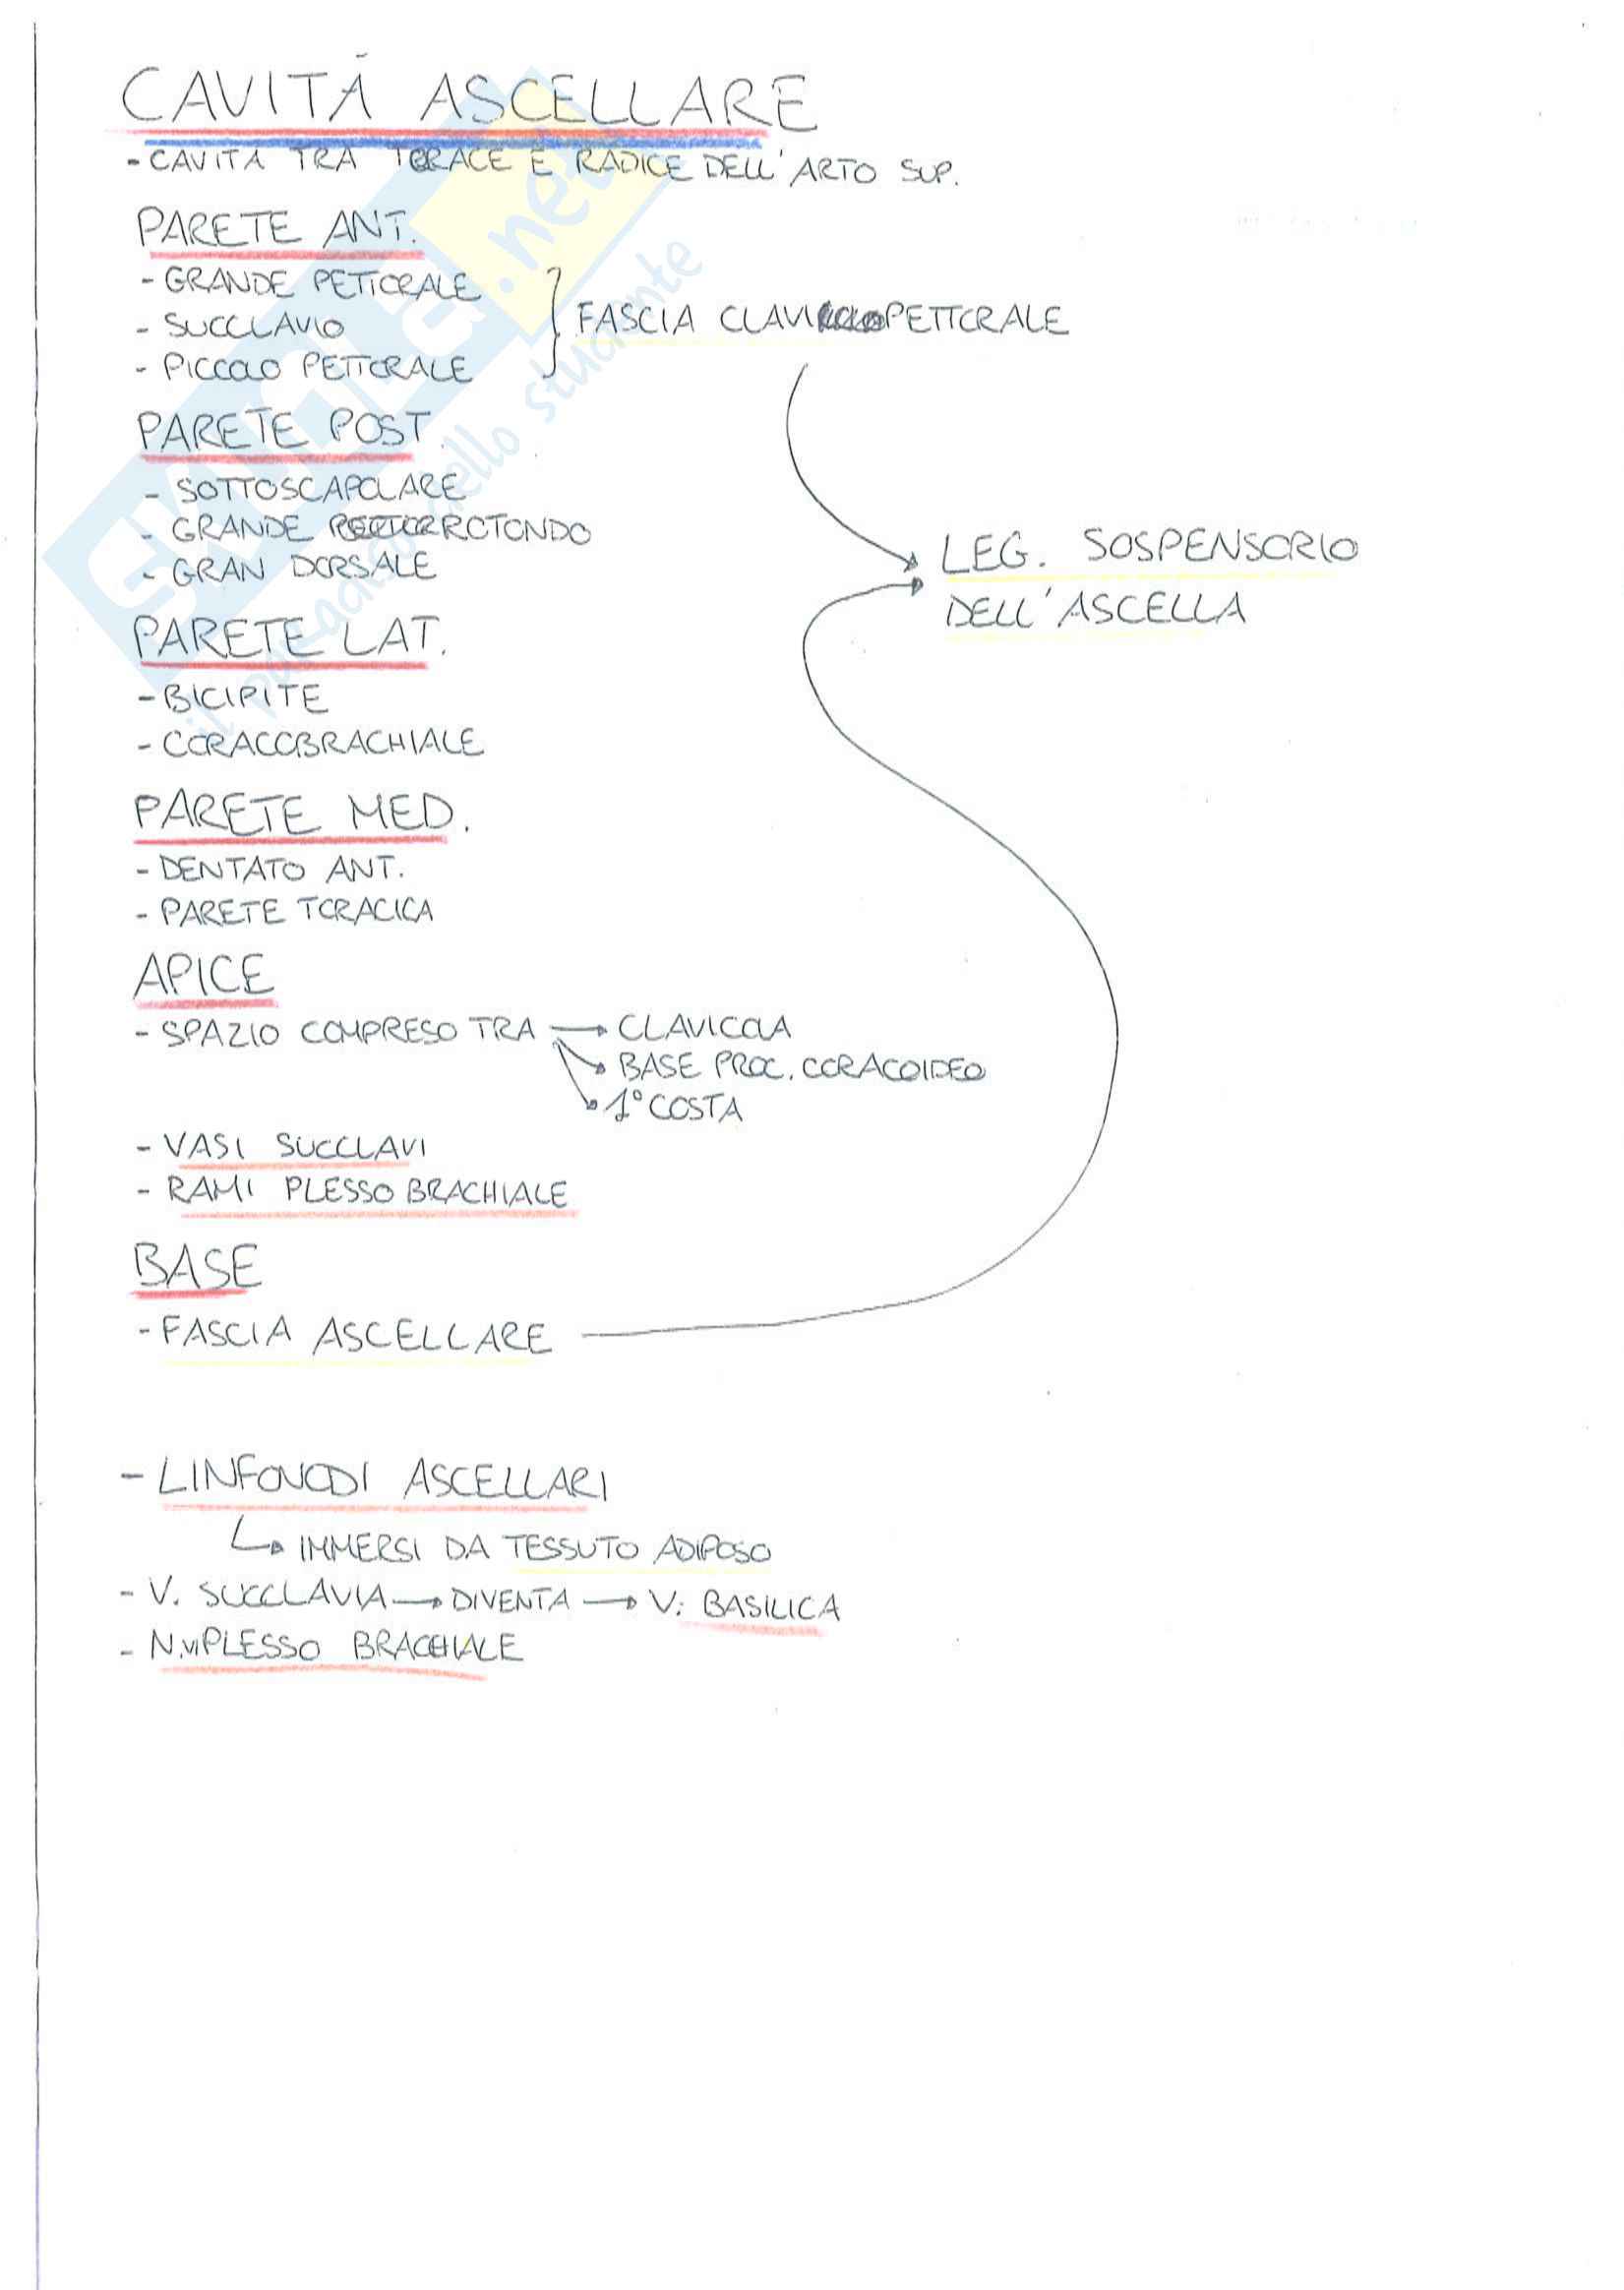 CAVITÁ ASCELLARE
- CAVITÀ TRA TORACE E RADICE DELL'ARTO SUP.
PARETE ANT.
- GRANDE PETTORALE
- SUCCLAVIO
- PICCOLO PETTORALE
FASCIA CLAVIPETTORALE
PARETE POST.
- SOTTOSCAPOLARE
- GRANDE ROTONDO
- GRAN DORSALE
LEG. SOSPENSORIO
DELL'ASCELLA
PARETE LAT.
- BICIPITE
- CORACOBRACHIALE
PARETE MED.
- DENTATO ANT.
- PARETE TORACICA
APICE
- SPAZIO COMPRESO TRA → CLAVICOLA
BASE PROC. CORACOIDEO
1° COSTA
- VASI SUCCLAVI
- RAMI PLESSO BRACHIALE
BASE
- FASCIA ASCELLARE
- LINFONODI ASCELLARI
↳ IMMERSI DA TESSUTO ADIPOSO
- V. SUCCLAVIA → DIVENTA → V. BASILICA
- N. PLESSO BRACHIALE
SKUOLA.net
il paradiso dello studente